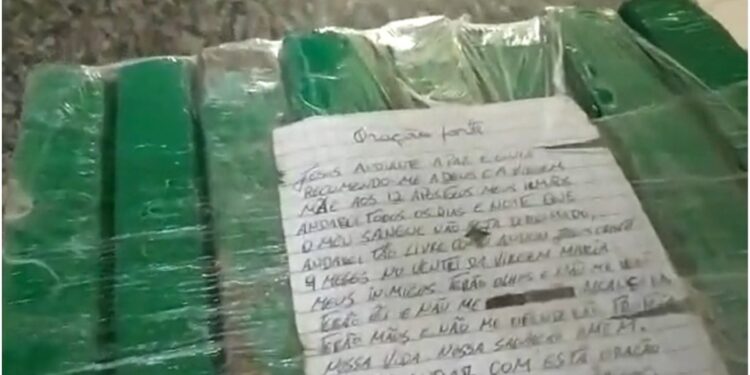 Oração forte
JESUS ADIANTE A PAZ E GUIA
RECUMENDO-ME A DEUS E A VIRGEM
MÃE AOS 12 APOSTOLOS MEUS IRMÃOS
ANDAREI TODOS OS DIAS E NOITE QUE
O MEU SANGUE NÃO DERRAMADO,
ANDAREI TÃO LIVRE COMO ANDOU JESUS CRISTO
9 MESES NO VENTRE DA VIRGEM MARIA
MEUS INIMIGOS TERÃO OLHOS E NÃO ME
TERÃO E NÃO ME
TERÃO MÃOS E NÃO ME
NOSSA VIDA NOSSA SALVAÇÃO AMEM.
COM ESTA ORAÇÃO